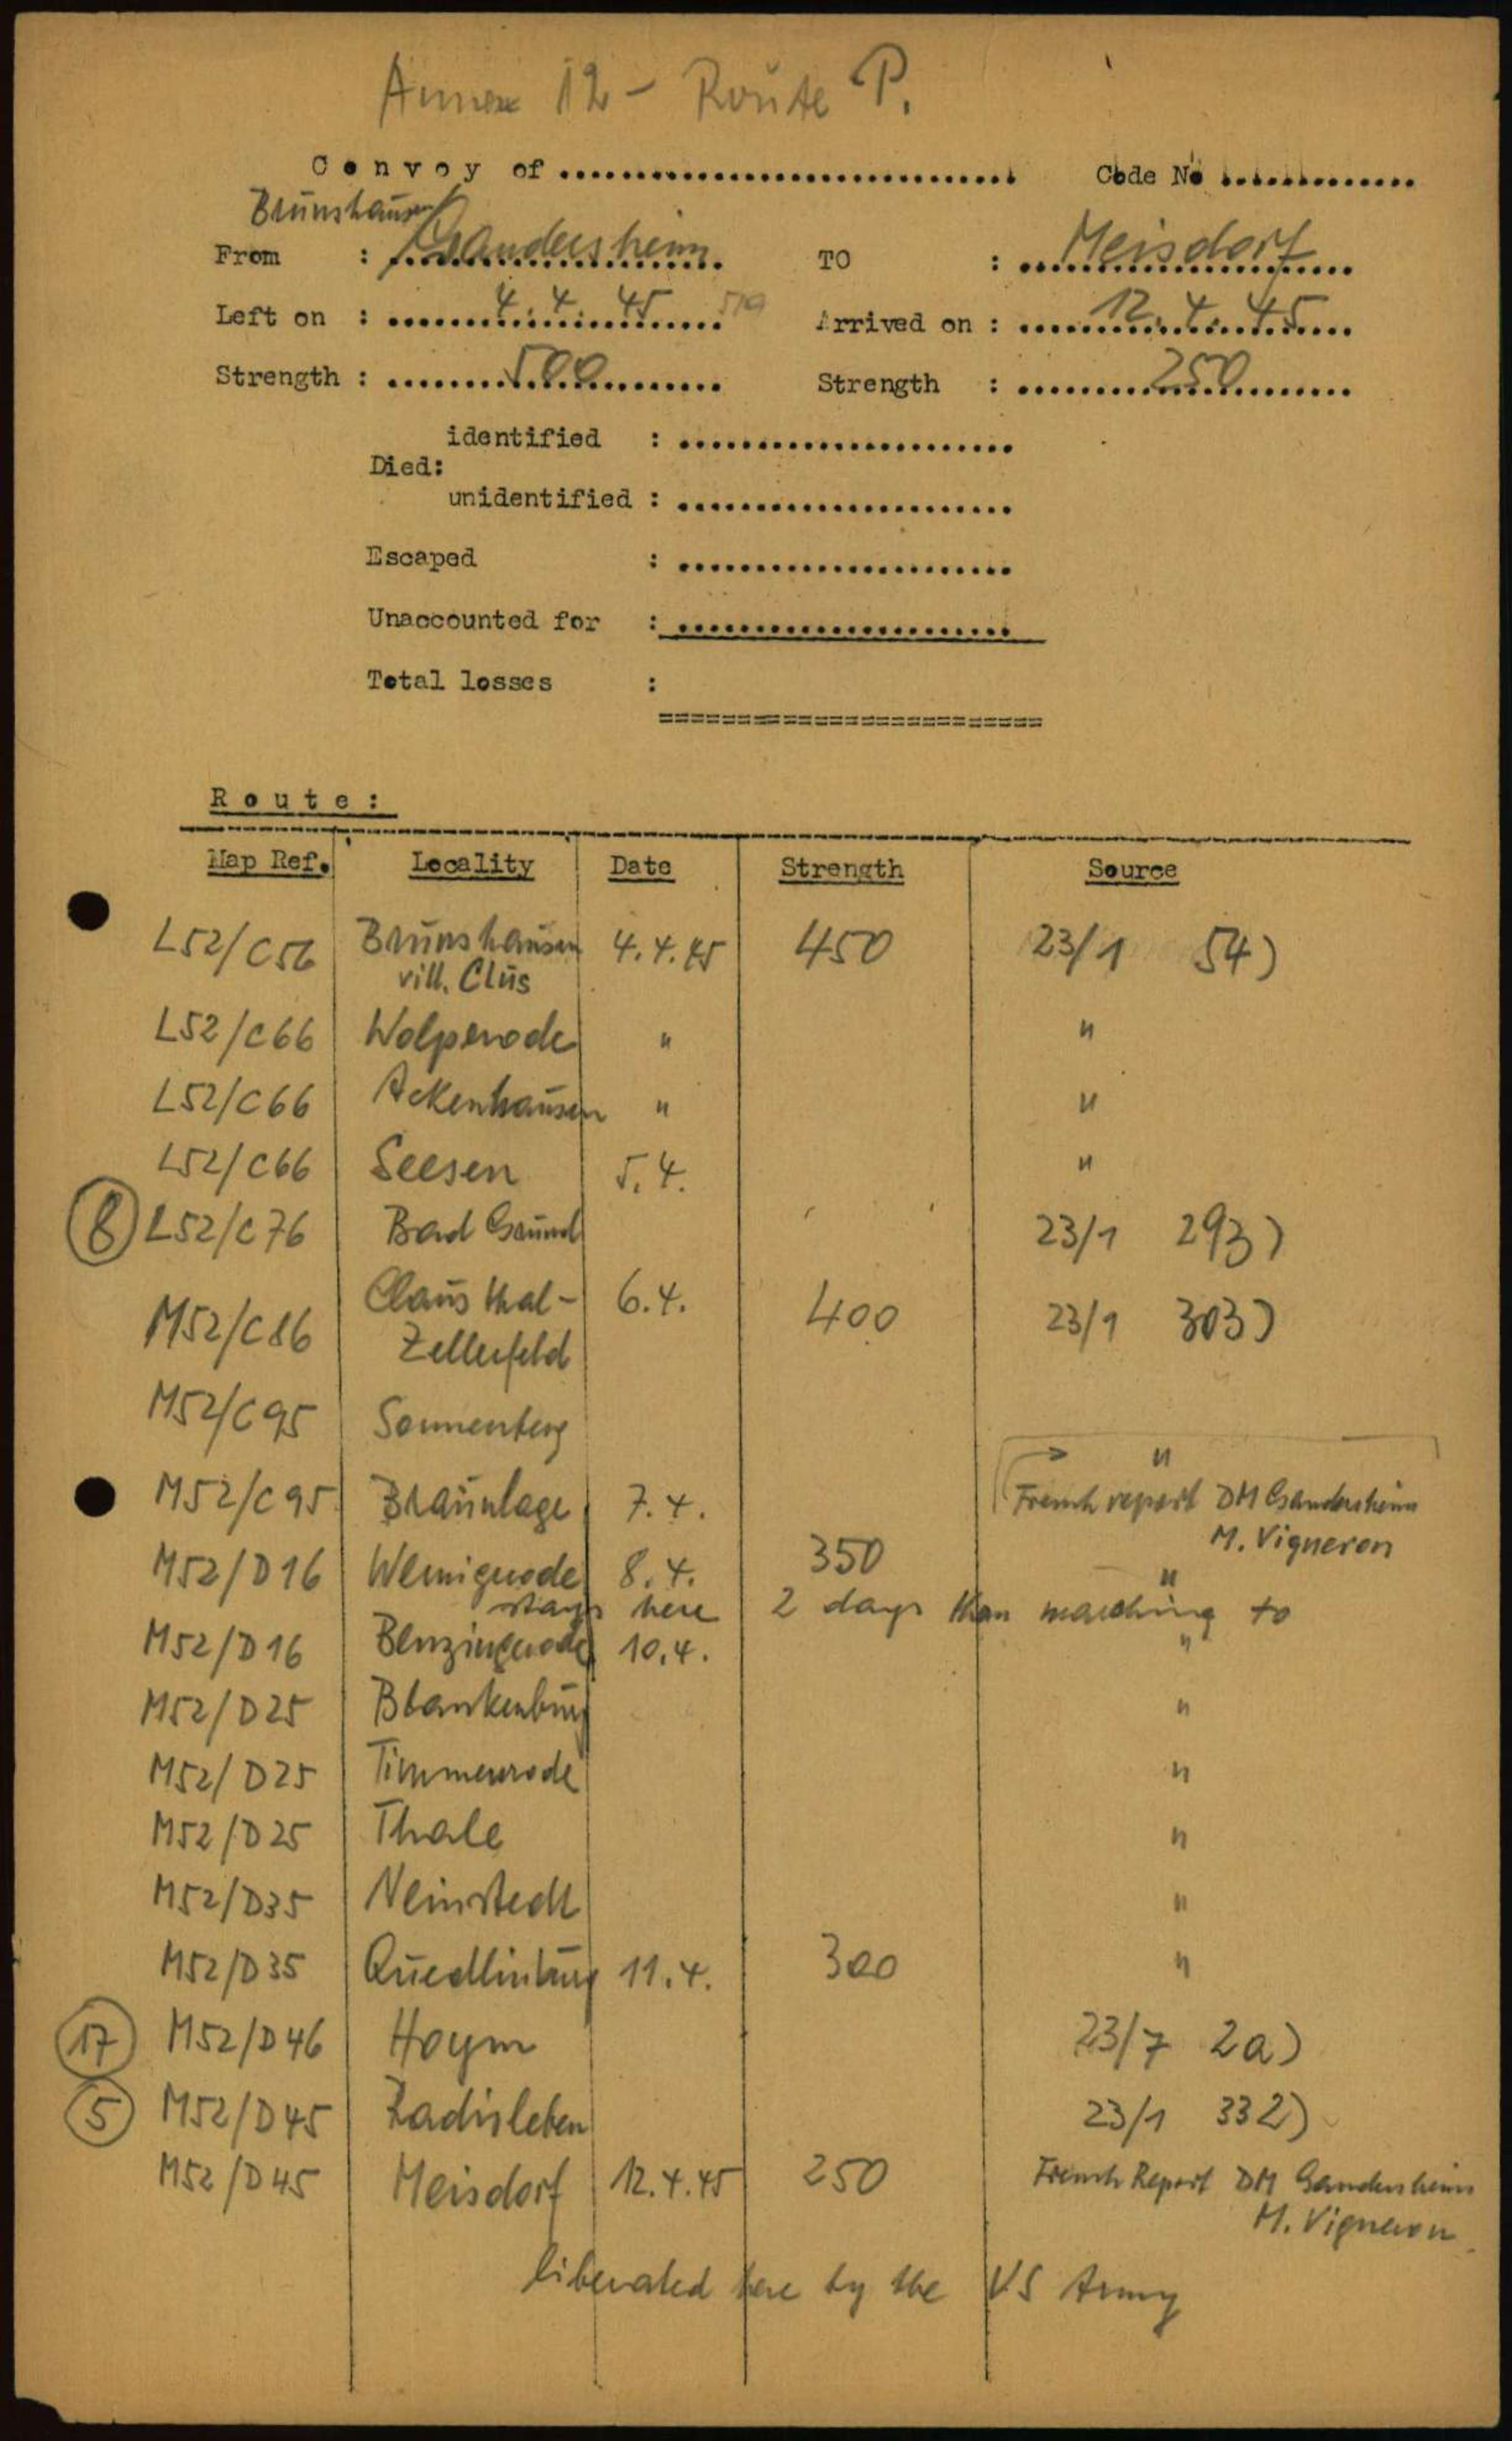 Annex 12 - Route P.
Convoy of .............................. Code No .............
Brunshausen/
From : Gandersheim TO : Meisdorf
Left on : 4. 4. 45 Arrived on : 12. 4. 45
Strength : 500 Strength : 250
identified : ......................
Died:
unidentified : ......................
Escaped : ......................
Unaccounted for : ......................
Total losses :
=========================
Route:
Map Ref. Locality Date Strength Source
L52/C56 Brunshausen 4.4.45 450 23/1 54)
vill. Clus
L52/C66 Wolperode " "
L52/C66 Ackenhausen " "
L52/C66 Seesen 5.4. "
8 L52/C76 Bad Grund 23/1 293)
M52/C86 Clausthal- 6.4. 400 23/1 303)
Zellerfeld
M52/C95 Sonnenberg "
M52/C95 Braunlage 7.4. French report DM Gandersheim
M. Vigneron
M52/D16 Wernigerode 8.4. 350 "
stays here 2 days than marching to
M52/D16 Benzingerode 10.4. "
M52/D25 Blankenburg "
M52/D25 Timmenrode "
M52/D25 Thale "
M52/D35 Neinstedt "
M52/D35 Quedlinburg 11.4. 300 "
17 M52/D46 Hoym 23/7 2a)
5 M52/D45 Radisleben 23/1 332)
M52/D45 Meisdorf 12.4.45 250 French Report DM Gandersheim
M. Vigneron
liberated here by the US Army